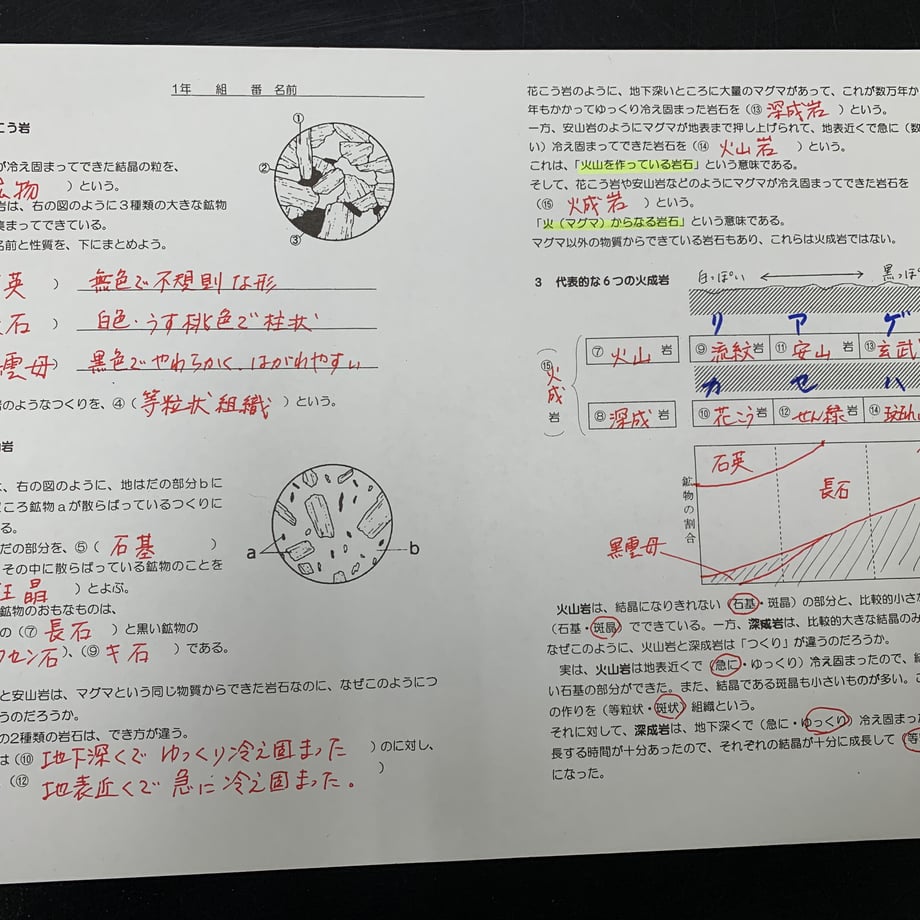 1年　組　番 名前
こう岩
①
②
③
が冷え固まってできた結晶の粒を、
鉱物　）という。
岩は、右の図のように３種類の大きな鉱物
集まってできている。
名前と性質を、下にまとめよう。
英　） 無色で不規則な形
石　） 白色・うす桃色で柱状
雲母） 黒色でやわらかく、はがれやすい
岩のようなつくりを、④（等粒状組織　）という。
岩
は、右の図のように、地はだの部分ｂに
ころ鉱物ａが散らばっているつくりに
る。
a
b
だの部分を、⑤（　石基　）
その中に散らばっている鉱物のことを
晶　）とよぶ。
鉱物のおもなものは、
の（⑦ 長石　）と黒い鉱物の
セン石）、（⑨ キ石　）である。
と安山岩は、マグマという同じ物質からできた岩石なのに、なぜこのようにつ
うのだろうか。
の２種類の岩石は、でき方が違う。
は（⑩ 地下深くで ゆっくり冷え固まった　）のに対し、
（⑫ 地表近くで 急に冷え固まった。　）
花こう岩のように、地下深いところに大量のマグマがあって、これが数万年か
年もかかってゆっくり冷え固まった岩石を（⑬ 深成岩　）という。
一方、安山岩のようにマグマが地表まで押し上げられて、地表近くで急に（数
い）冷え固まってできた岩石を（⑭　火山岩　）という。
これは、「火山を作っている岩石」という意味である。
そして、花こう岩や安山岩などのようにマグマが冷え固まってできた岩石を
（⑮　火成岩　）という。
「火（マグマ）からなる岩石」という意味である。
マグマ以外の物質からできている岩石もあり、これらは火成岩ではない。
３　代表的な６つの火成岩
白っぽい
黒っぽ
リ　ア　ゲ
⑮火成岩
⑦ 火山 岩
⑨ 流紋 岩　⑪ 安山 岩　⑬ 玄武
カ　セ　ハ
⑧ 深成 岩
⑩ 花こう 岩　⑫ せん緑 岩　⑭ 斑れい
鉱物の割合
石英
長石
黒雲母
火山岩は、結晶になりきれない（石基・斑晶）の部分と、比較的小さな
（石基・斑晶）でできている。一方、深成岩は、比較的大きな結晶のみ
なぜこのように、火山岩と深成岩は「つくり」が違うのだろうか。
実は、火山岩は地表近くで（急に・ゆっくり）冷え固まったので、結
い石基の部分ができた。また、結晶である斑晶も小さいものが多い。こ
の作りを（等粒状・斑状）組織という。
それに対して、深成岩は、地下深くで（急に・ゆっくり）冷え固まった
長する時間が十分あったので、それぞれの結晶が十分に成長して（等
になった。